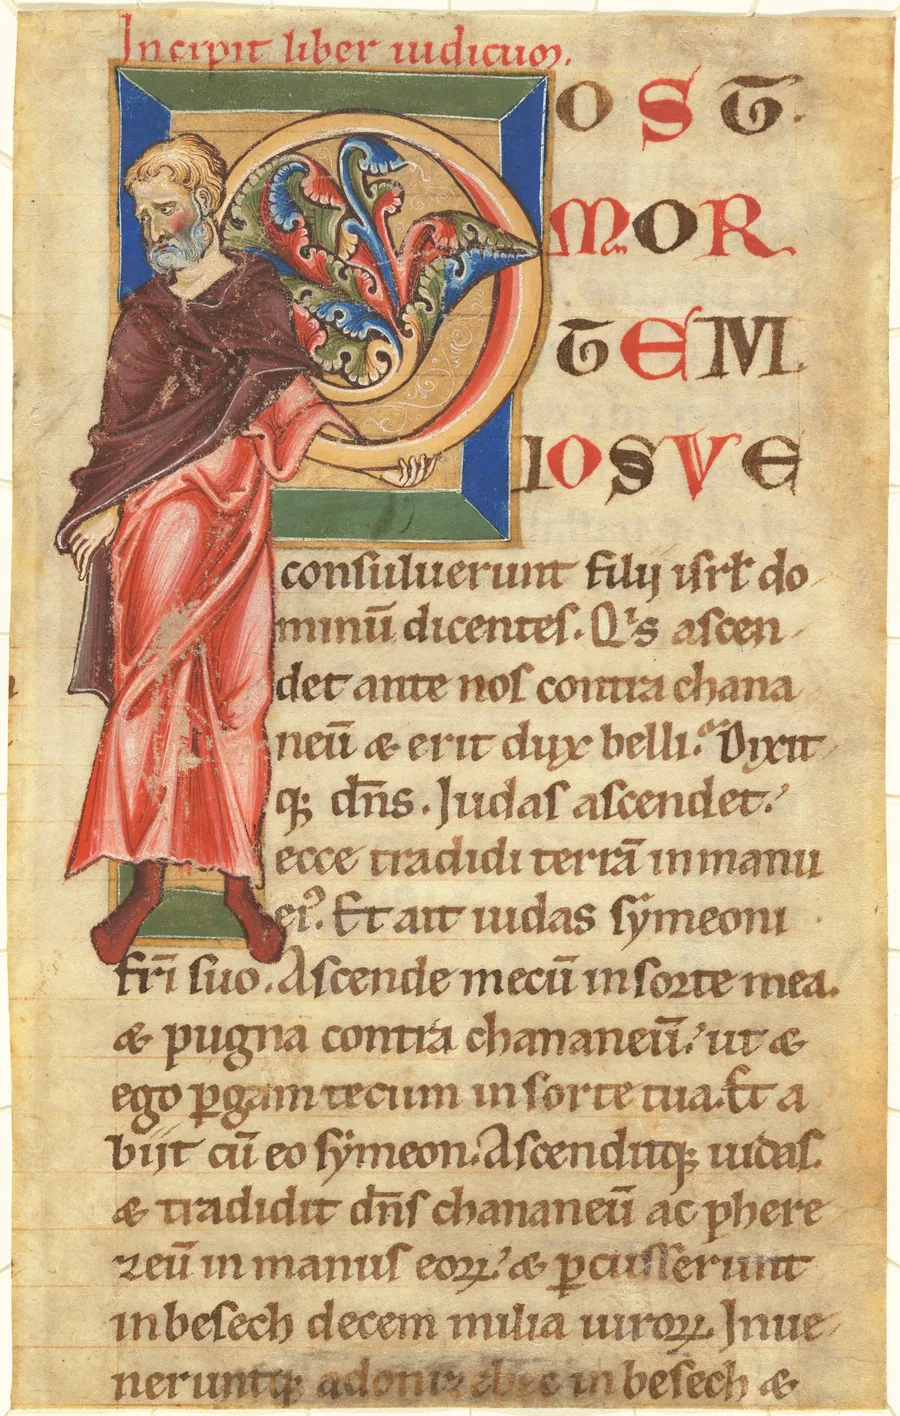 Incipit liber iudicum.
POST
MOR
TEM
IOSVE
consuluerunt filij isrl̄ do
minū dicentes. Qͥs ascen
det ante nos contra chana
neū & erit dux belli? Dixit
qꝫ dn̄s. Judas ascendet.
ecce tradidi terrā in manu
eiꝰ. Et ait iudas sẏmeoni
fr̄i suo. Ascende mecū in sorte mea.
& pugna contra chananeū. ut &
ego ꝑgam tecum in sorte tua. Et a
biit cū eo sẏmeon. Ascenditqꝫ iudas.
& tradidit dn̄s chananeū ac phere
zeū in manus eoꝝ. & ꝑcusserunt
in besech decem milia uiroꝝ. Inue
neruntqꝫ adonizebec in besech &